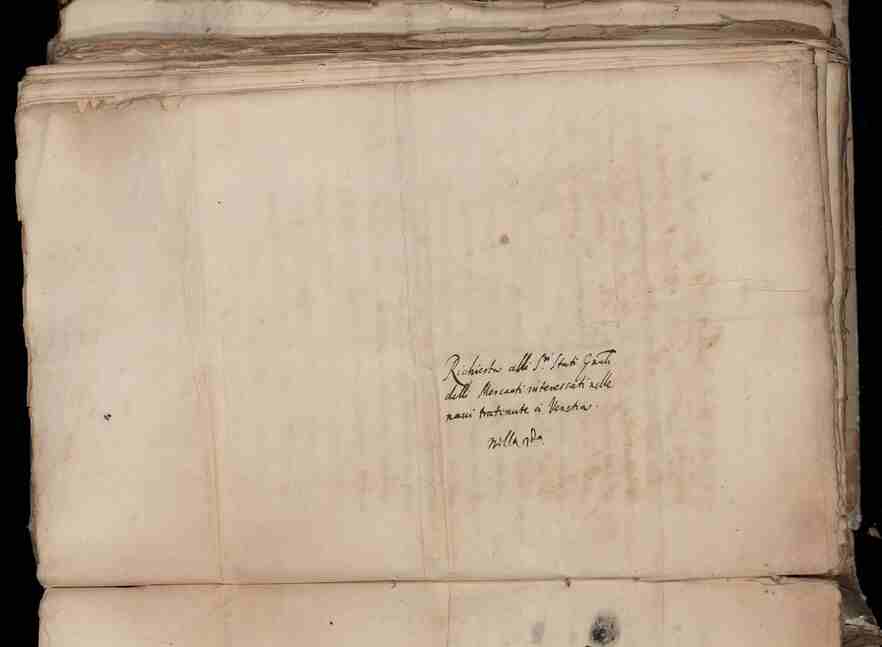 Richiesta alli S.ri Stati Gnāli
delli Mercanti interessati nelle
navi trattenute a Venetia.
nella